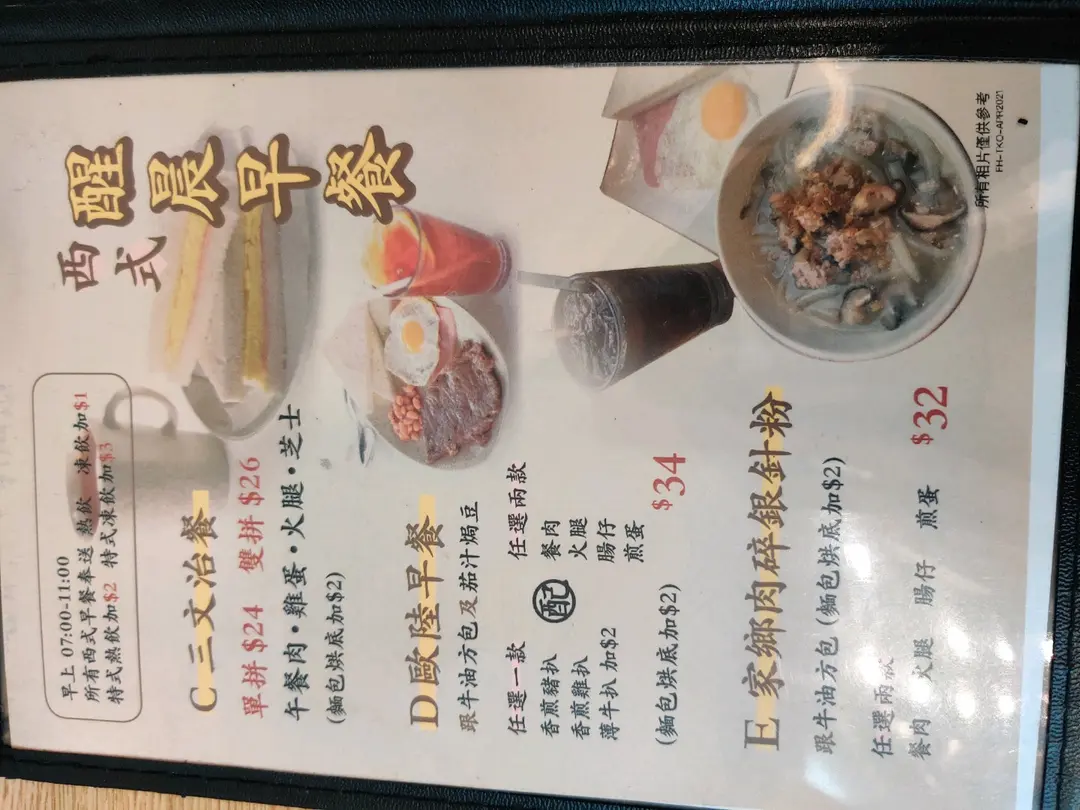 西式
醒晨早餐
早上 07:00-11:00
所有西式早餐奉送 熱飲 凍飲加$1
特式熱飲加$2 特式凍飲加$3
C 三文治餐
單拼 $24 雙拼 $26
午餐肉 • 雞蛋 • 火腿 • 芝士
(麵包烘底加$2)
D 歐陸早餐
跟牛油方包及茄汁焗豆
任選一款 配 任選兩款
香煎豬扒 餐肉
香煎雞扒 火腿
薄牛扒 加$2 腸仔
煎蛋
(麵包烘底加$2) $34
E 家鄉肉碎銀針粉
跟牛油方包 (麵包烘底加$2)
任選兩款
餐肉 火腿 腸仔 煎蛋 $32
所有相片僅供參考
FH-TKO-APR2021